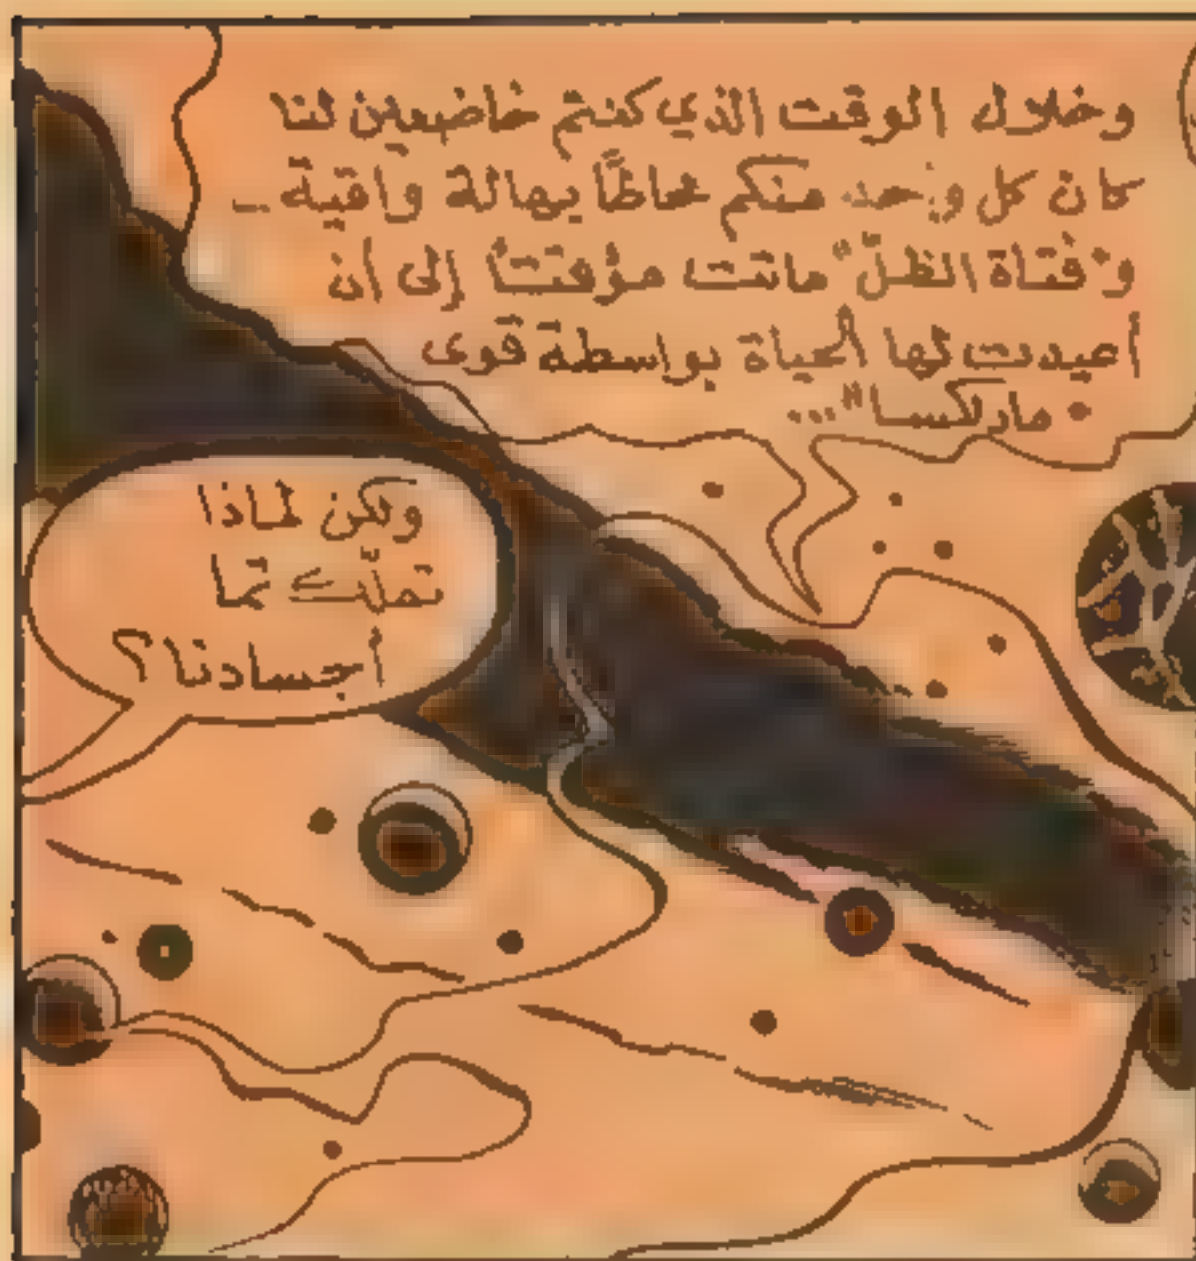 وخلال الوقت الذي كنتم خاضعين لنا
كان كل واحد منكم محاطًا بهالة واقية ـ
و"فتاة الظلّ" ماتت مؤقتًا إلى أن
أعيدت لها الحياة بواسطة قوى
"مارلكسا"...
ولكن لماذا
تملّك تما
أجسادنا؟